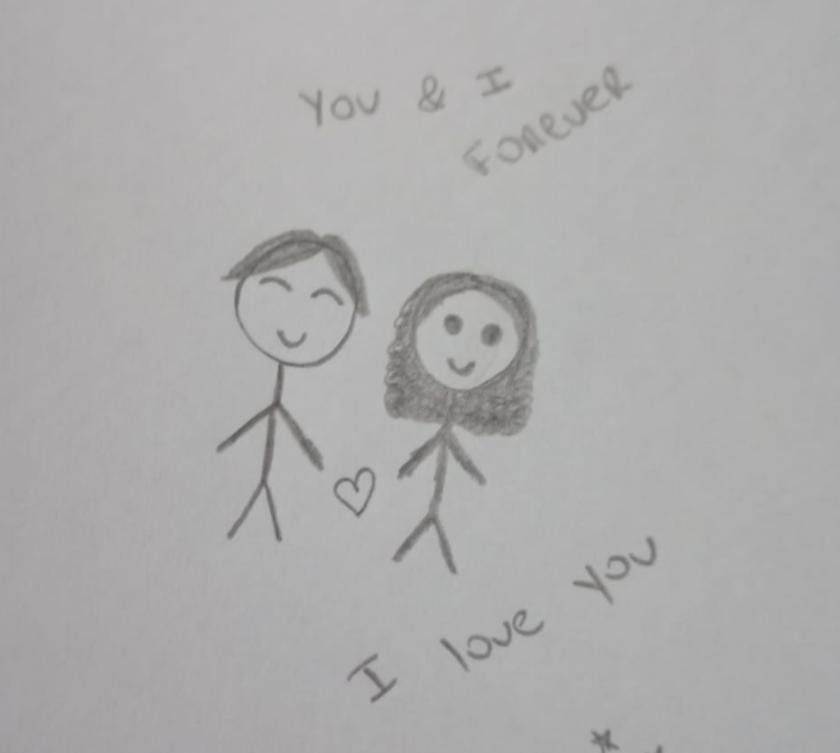 You & I
Forever
I love you